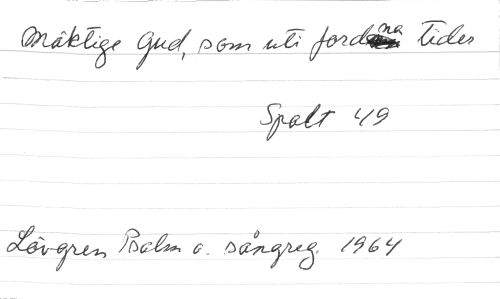 Mäktige Gud, som uti fordna tider
Spalt 49
Lövgren Psalm o. sångreg. 1964